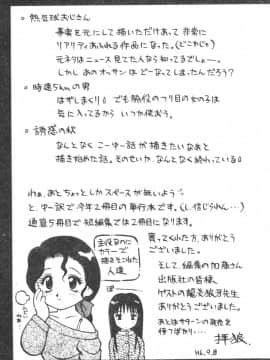 ○熱気球おじさん
事実を元にして描いただけあって非常に
リアリティあふれる作品になった。(どこがじゃ)
元ネタはニュース見てた人なら知ってるでしょー。
しかしあのオッサンはどーなってしまったんだろう?
○時速5kmの男
はずしまくり。でも脇役のつり目の女の子は
気に入ってるからいつか使おう。
○誘惑の秋
なんとなくこーゆー話が描きたいなあと
描き始めた話。そのせいか、なんとなく終わっている。
わぉ、あとちょっとしかスペースが無いよう
と、ゆー訳で今年2冊目の単行本です。(し、信じられん…)
通算5冊目で短編集では2冊目になります。
買ってくれた方、ありがとう
ございました。
そして、編集の加藤さん
出版社の皆様、
ゲストの
先生
ありがとうございました。
あとはサターンの発売を
待つばかり…
拝狼
'96.9.8
主役なのに
カラーで
描きそこねた
人達
ぽ